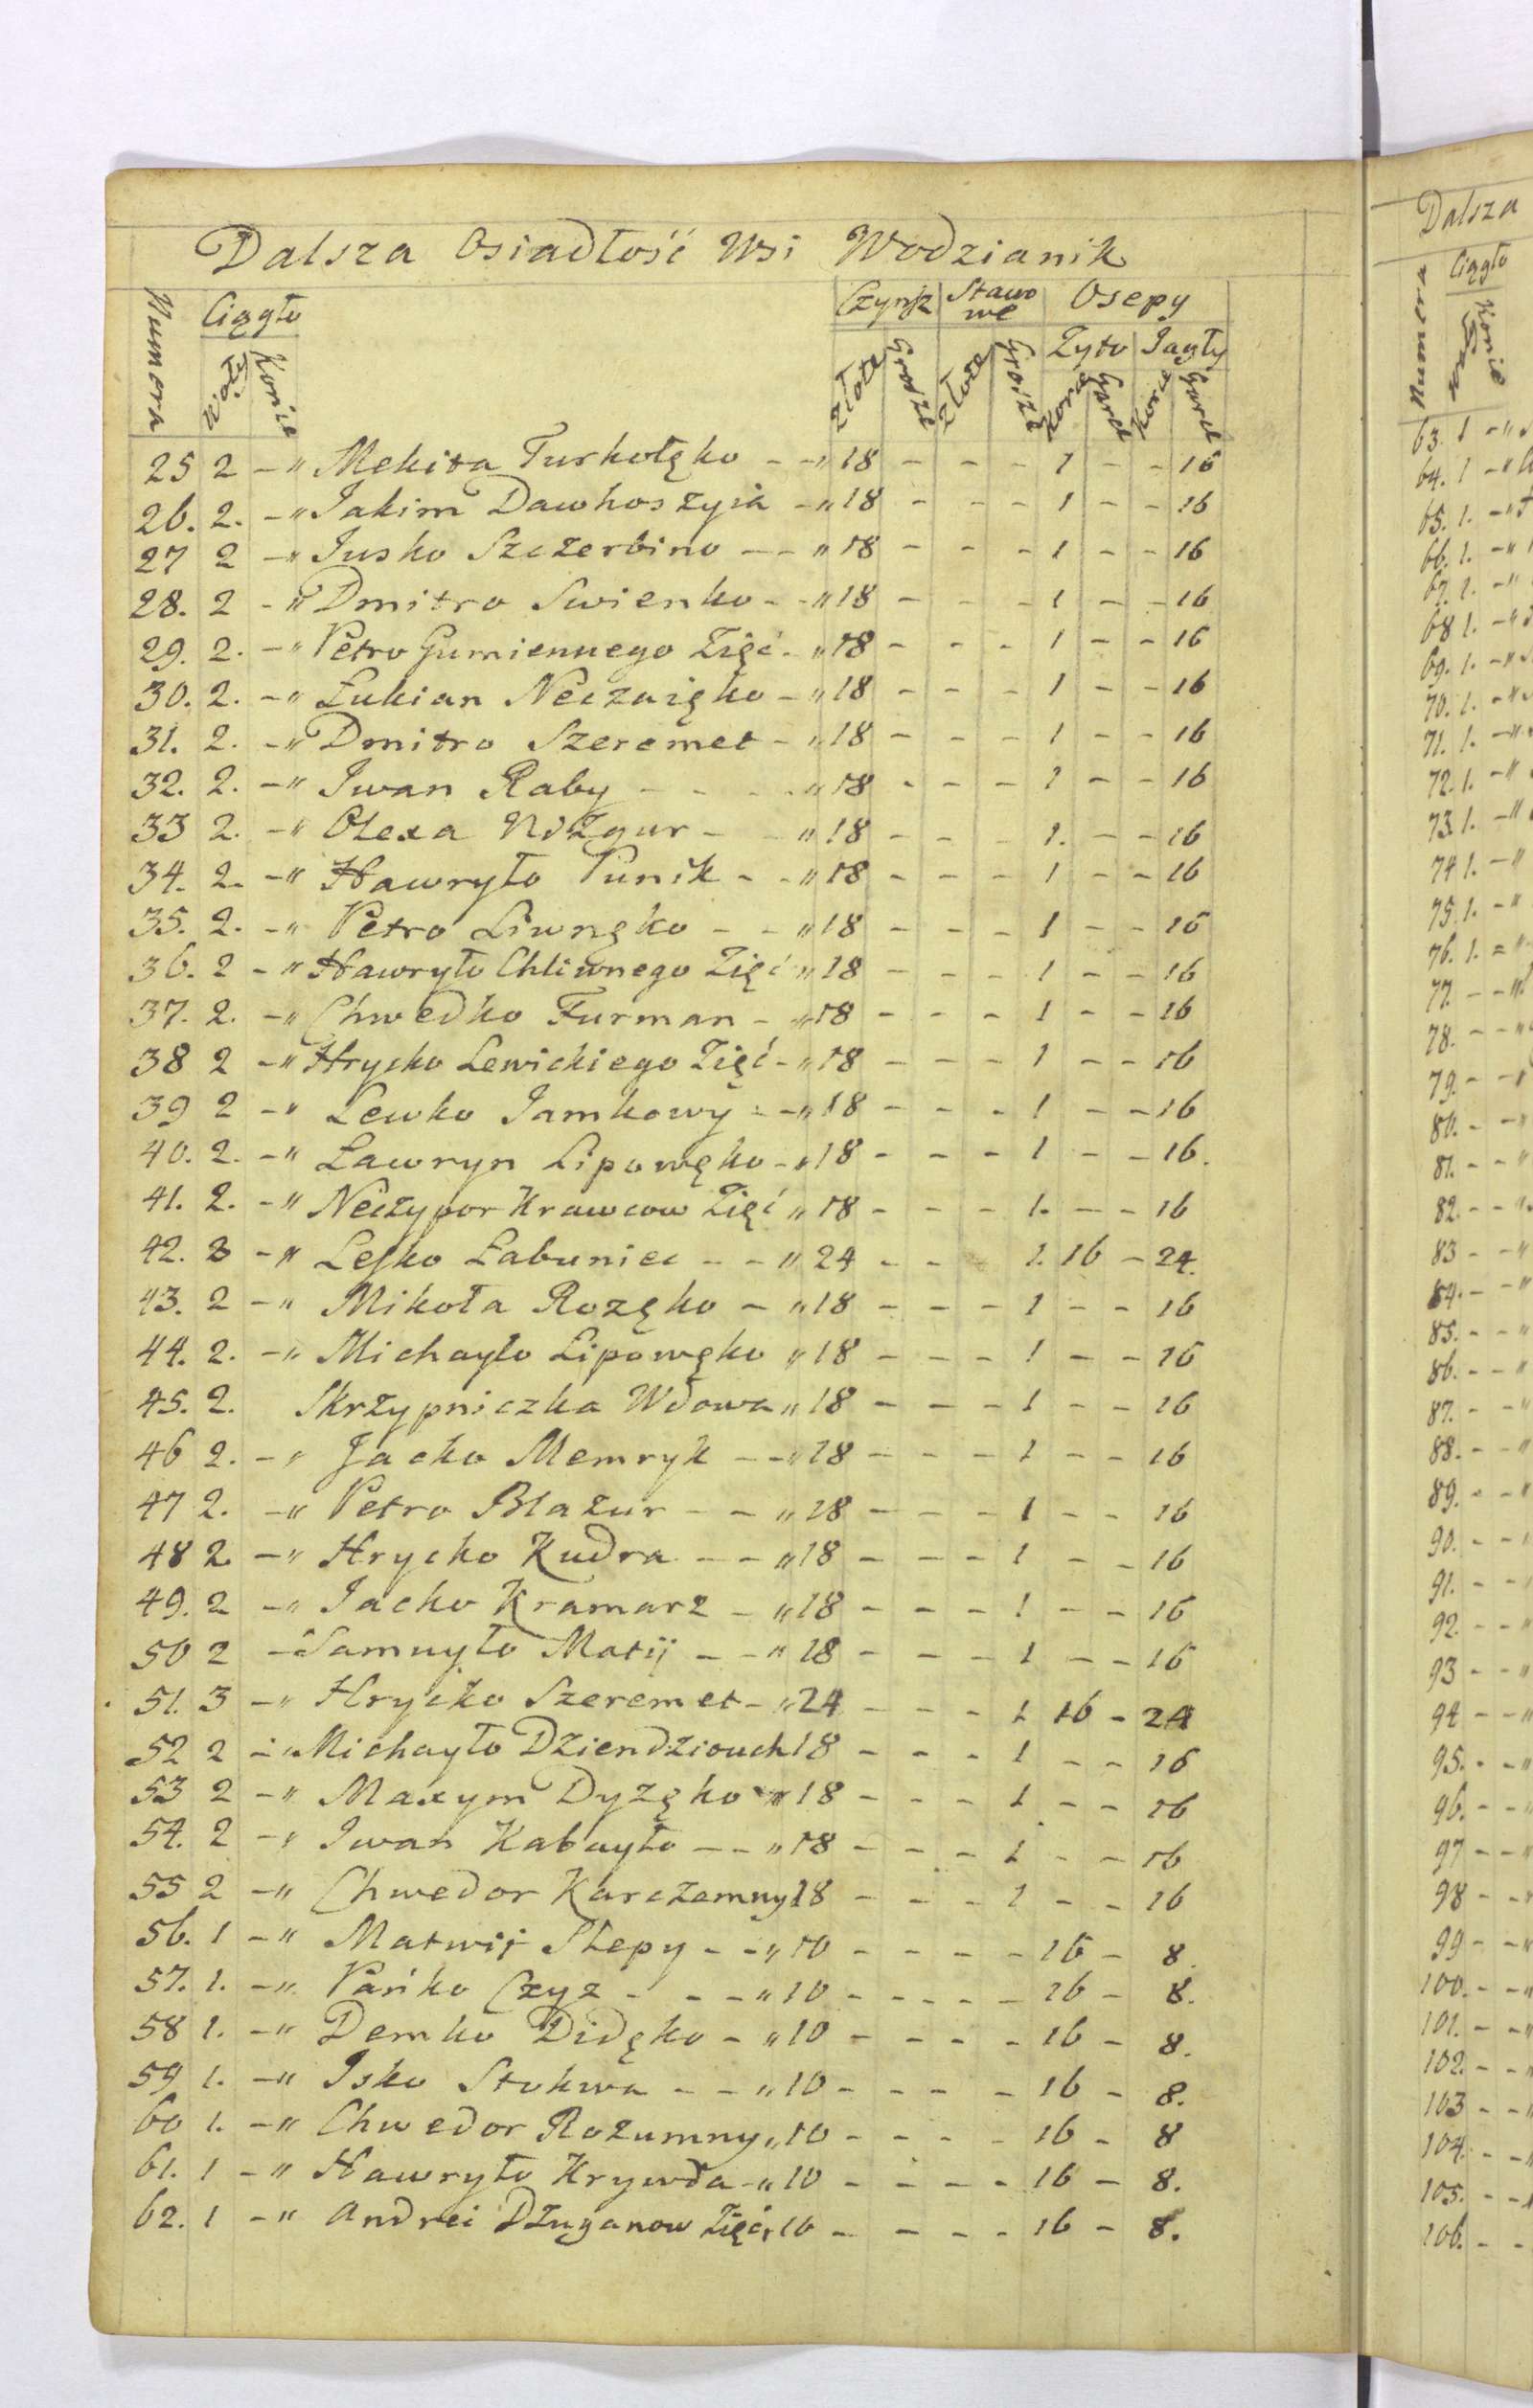 Dalsza Osiadłość Wsi Wodzianik
Numera Ciągło Czynsz Stawowe Osepy
Konie Złote Grosze Złote Grosze Żyto Jagły
Korce Garce Korce Garce
25 2 - " Mekita Turkotęko - - " 18 - - - 1 - - 16
26. 2. - " Jakim Dawhoszyia - " 18 - - - 1 - - 16
27 2 - " Jusko Szczerbino - - " 18 - - - 1 - - 16
28. 2 - " Dmitro Swienko - - " 18 - - - 1 - - 16
29. 2. - " Petro Gumiennego Zięć - " 18 - - - 1 - - 16
30. 2. - " Łukian Neczaięko - " 18 - - - 1 - - 16
31. 2. - " Dmitro Szeremet - " 18 - - - 1 - - 16
32. 2. - " Iwan Raby - - - - " 18 - - - 1 - - 16
33 2. - " Olexa Nożgur - - " 18 - - - 1. - - 16
34. 2. - " Hawryło Punik - - " 18 - - - 1 - - 16
35. 2. - " Petro Liwnęko - - " 18 - - - 1 - - 16
36. 2 - " Hawryło Chliwnego Zięć " 18 - - - 1 - - 16
37. 2. - " Chwedko Furman - " 18 - - - 1 - - 16
38 2 - " Hrycko Lewickiego Zięć - " 18 - - - 1 - - 16
39 2 - " Lewko Jamkowy - - " 18 - - - 1 - - 16
40. 2. - " Ławryn Lipowęko - " 18 - - - 1 - - 16.
41. 2. - " Neczypor Krawcow Zięć " 18 - - - 1. - - 16
42. 3 - " Lesko Łabuniec - - " 24 - - 1. 16 - 24.
43. 2 - " Mikoła Rozęko - " 18 - - - 1 - - 16
44. 2. - " Michayło Lipowęko " 18 - - - 1 - - 16
45. 2. Skrzypniczka Wdowa " 18 - - - 1 - - 16
46 2. - " Jacko Memryk - - " 18 - - - 1 - - 16
47 2. - " Petro Blazur - - " 18 - - - 1 - - 16
48 2 - " Hrycko Kudra - - " 18 - - - 1 - - 16
49. 2 - " Jacko Kramarz - " 18 - - - 1 - - 16
50 2 - Samuyło Matij - - " 18 - - - 1 - - 16
51. 3 - " Hrycko Szeremet - " 24 - - - 1 16 - 24
52 2 - " Michayło Dziendziouch 18 - - - 1 - - 16
53 2 - " Maxym Dyzęko " 18 - - - 1 - - 16
54. 2 - " Iwan Kabayło - - " 18 - - - 1 - - 16
55 2 - " Chwedor Karczemny 18 - - - 1 - - 16
56. 1 - " Matwij Slepy - - " 10 - - - - 16 - 8.
57. 1. - " Pańko Czyz - - - " 10 - - - - - 16 - 8.
58 1. - " Demko Didęko - " 10 - - - - 16 - 8.
59 1. - " Isko Stokwa - - " 10 - - - - 16 - 8.
60 1. - " Chwedor Rozumny " 10 - - - - 16 - 8
61. 1 - " Hawryło Krywda - " 10 - - - - 16 - 8.
62. 1 - " Andrei Dżuganow Zięć " 10 - - - - 16 - 8.
Dalsza
Numera Ciągło
Konie
63. 1 - "
64. 1 - "
65. 1. - "
66. 1. - "
67. 1. - "
68 1. - "
69. 1. - "
70. 1. - "
71. 1. - "
72. 1. - "
73. 1. - "
74 1. - "
75. 1. - "
76. 1. - "
77. - - "
78. - - "
79. - - "
80. - - "
81. - - "
82. - - "
83 - - "
84. - - "
85. - - "
86. - - "
87. - - "
88. - - "
89. - - "
90. - - "
91. - -
92. - - "
93 - - "
94 - - "
95. - - "
96. - - "
97 - - "
98 - - "
99 - - "
100. - - "
101. - - "
102. - - "
103 - - "
104. - - "
105. - -
106. - -